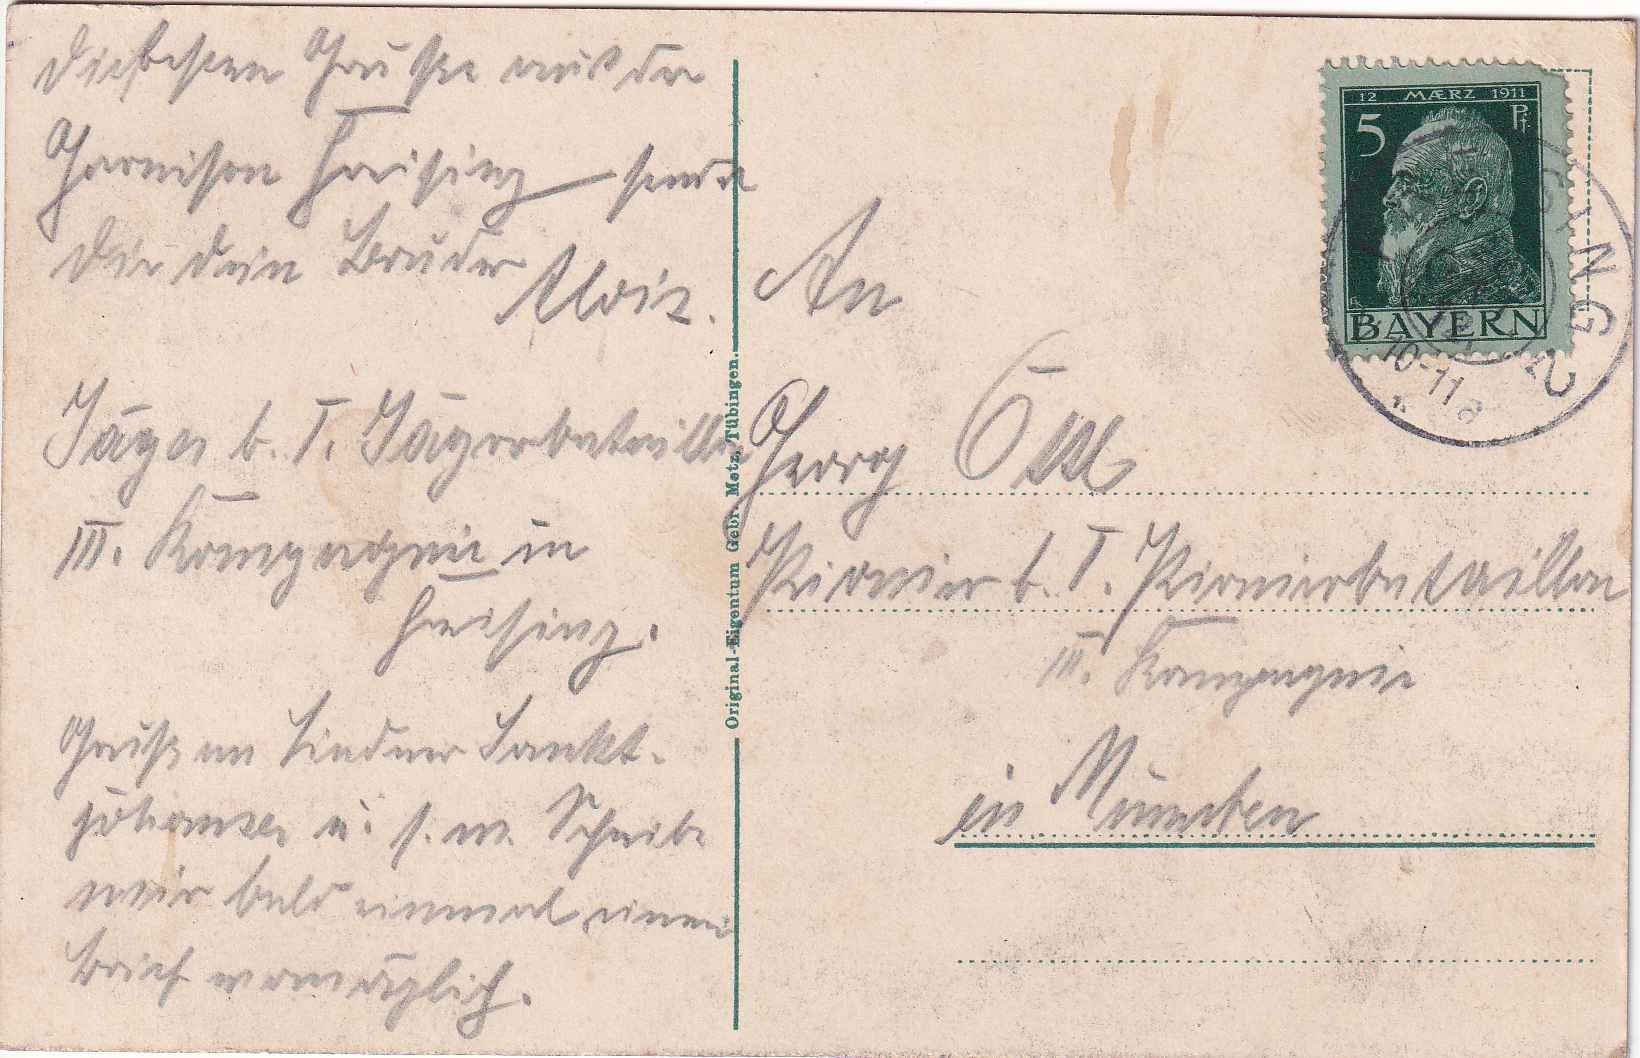 Die besten Grüße aus der
Garnison Freising sendet
Dir dein Bruder
Alois.
Jäger b. I. Jägerbataillon
III. Kompagnie in
Freising.
Gruß an Lindner Sankt-
johanser u. s. w. Schreibe
mir bald einmal einen
Brief womöglich.
Original-Eigentum Gebr. Metz, Tübingen.
12 MÆRZ 1911
5 Pf.
BAYERN
SING
10-11
An
Georg Öttl
Pionier b. I. Pionierbataillon
III. Kompagnie
in München